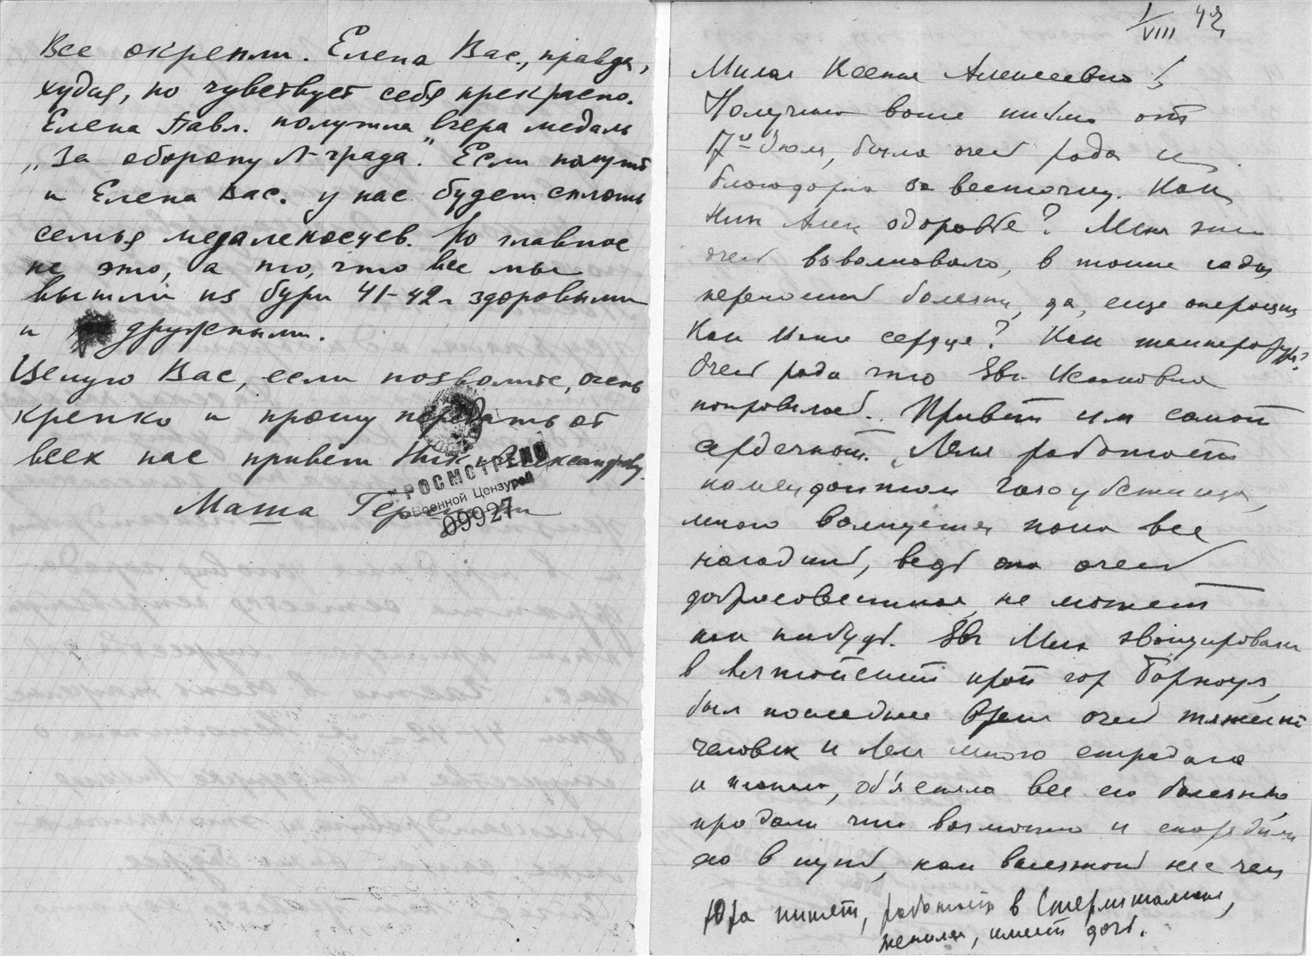 Все окрепли. Елена Вас., правда,
худая, но чувствует себя прекрасно.
Елена Павл. получила вчера медаль
„За оборону Л-града". Если получит
и Елена Вас. у нас будет сплошь
семья медаленосцев. Но главное
не это, а то, что все мы
вышли из бури 41-42 г здоровыми
и дружными.
Целую Вас, если позволите, очень
крепко и прошу передать от
всех нас привет Ник. Александров.
Маша
ПРОСМОТРЕНО
Военной Цензурой
09927
I/VIII 43
Милая Ксения Алексеевна!
Получила ваше письмо от
17го Июля, была очень рада и
благодарна за весточку. Как
Ник Алек здоровье? Меня это
очень взволновало, в такие годы
переносит болезни, да, еще операции
Как Ваше сердце? Как температура?
Очень рада что Евг. Исааковна
поправилась. Привет им самой
сердечной. Леля работает
комендантом газоубежища,
много волнуется пока все
наладит, ведь она очень
добросовестная, не может
как нибудь. Евг Мих эвакуировали
в Алтайский край гор Барнаул,
был последнее время очень тяжелый
человек и Леля много страдала
и плакала, объясняла все его болезнью
продали что возможно и снарядили
его в путь, как
Юра пишет, работает в Стерлитамаке,
женился, имеет дочь.